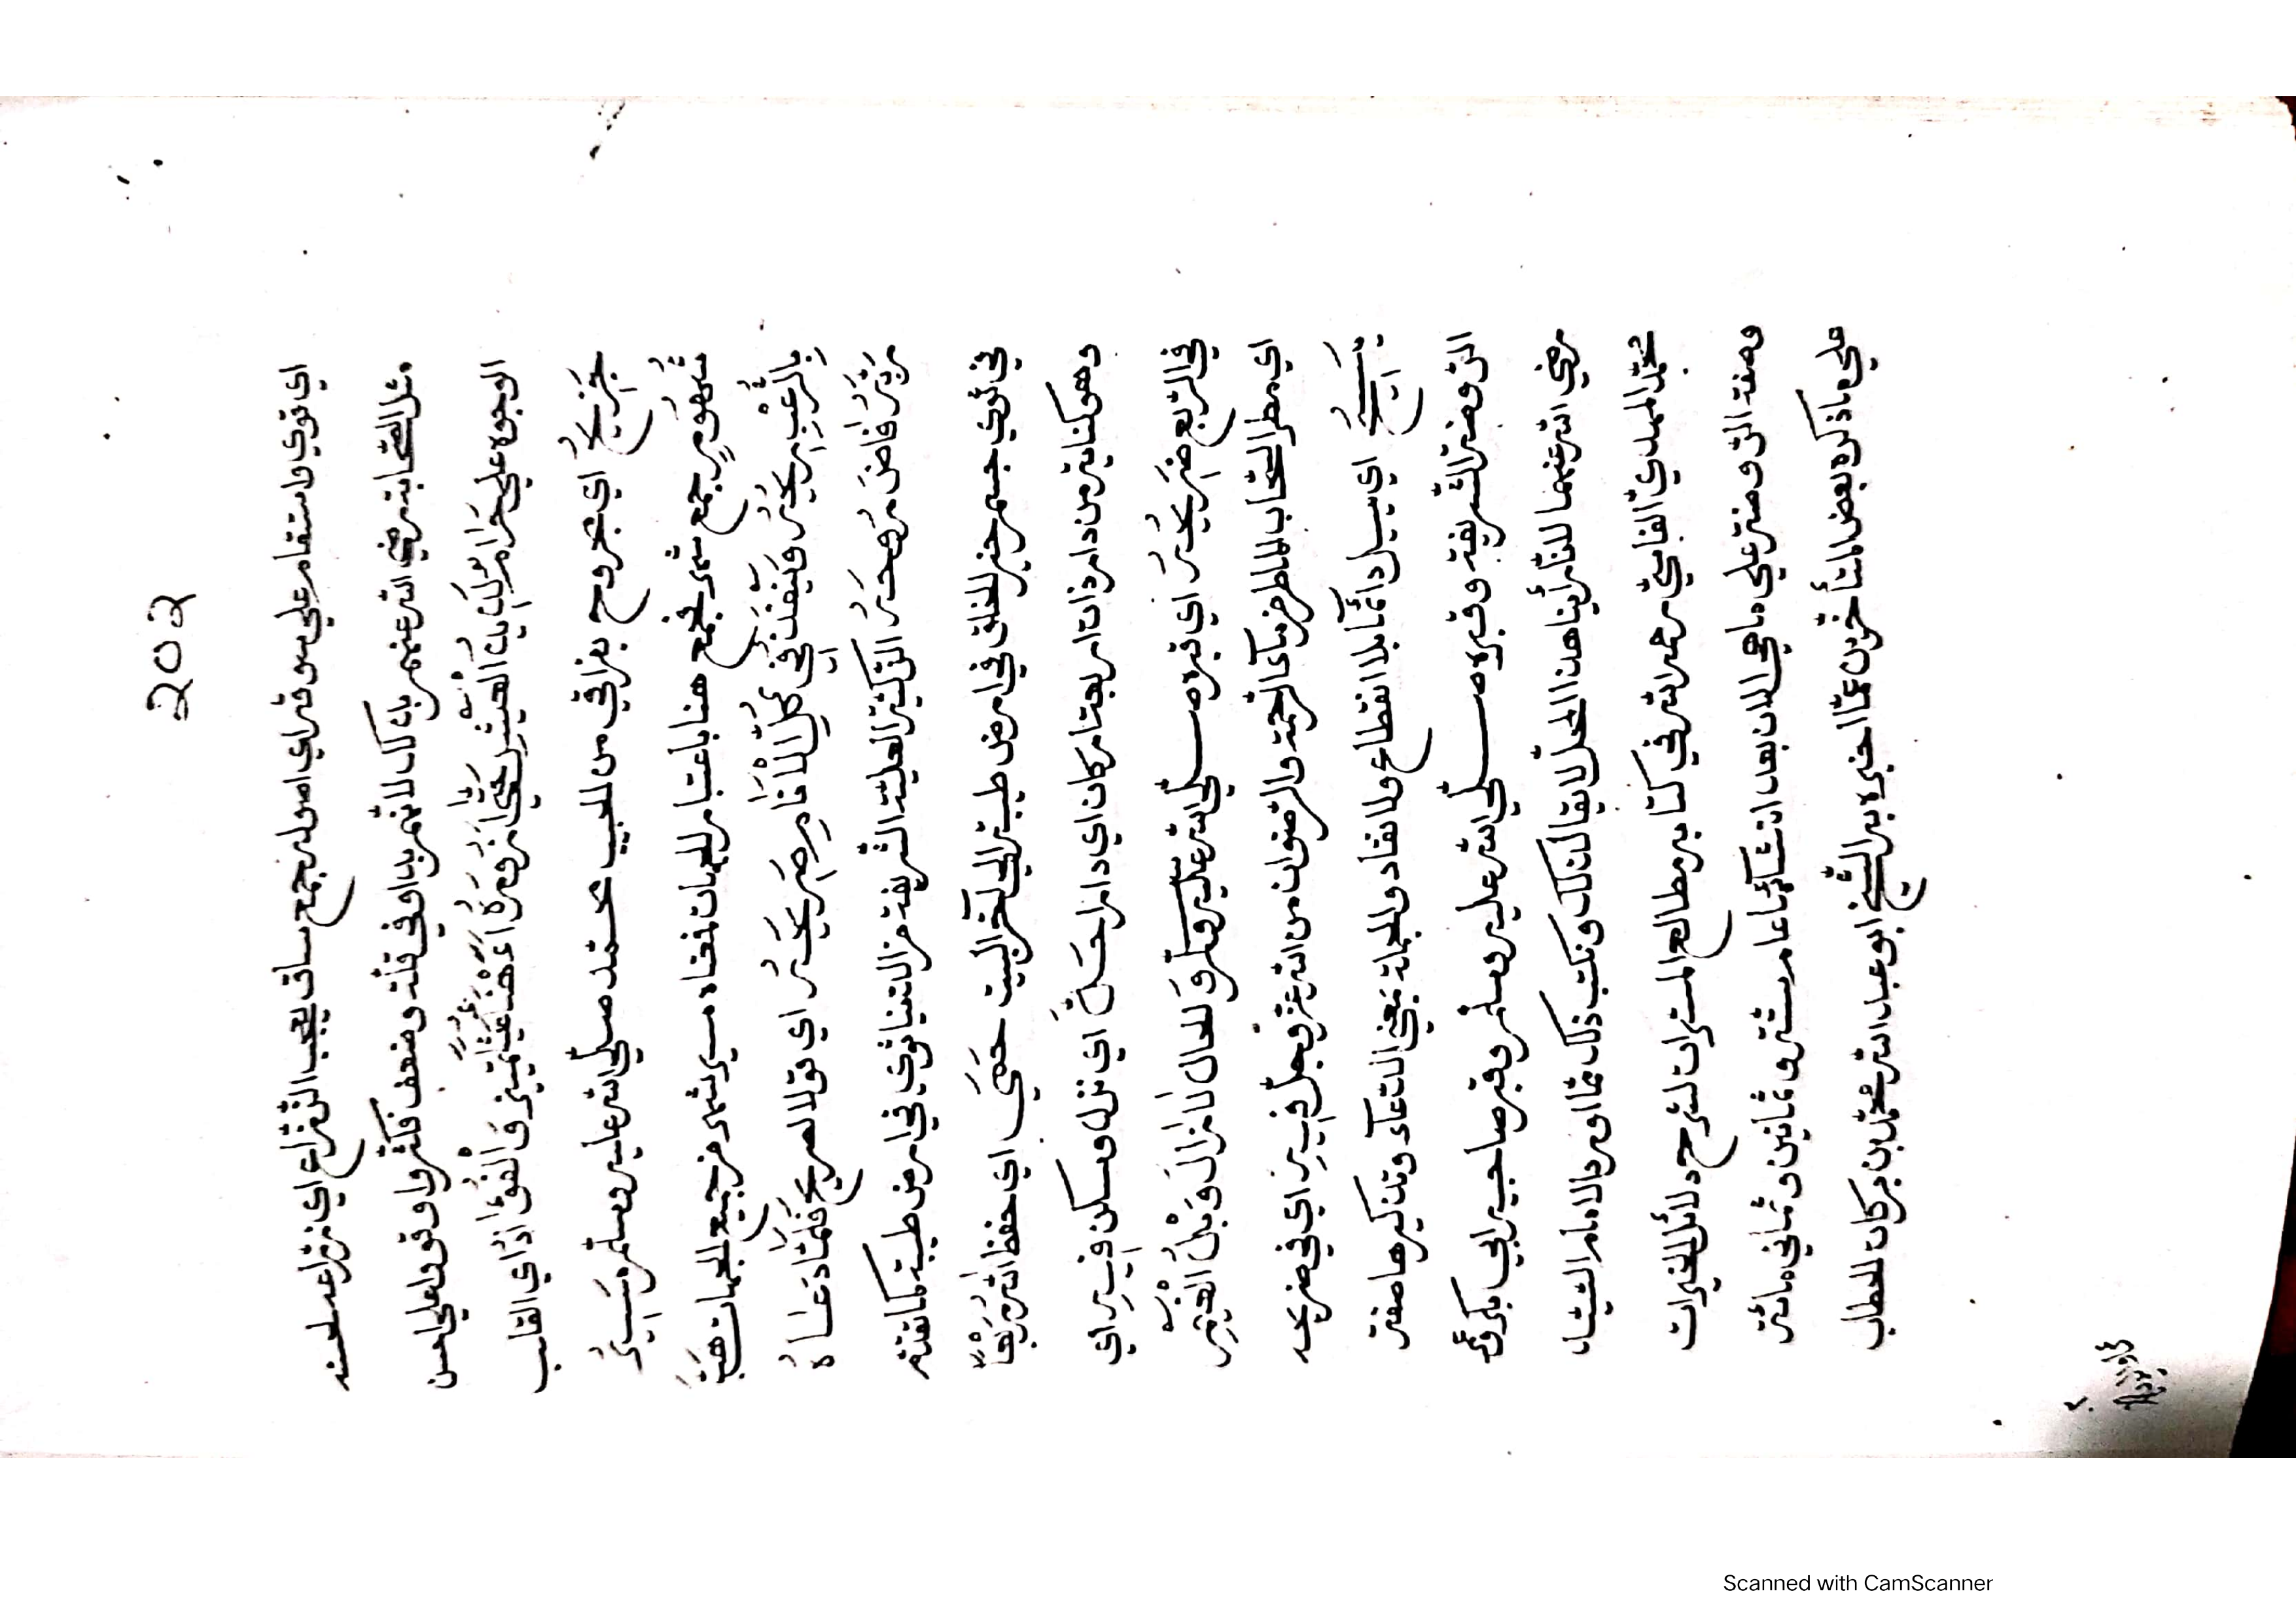 203
اي قوي واستقام علي سوقه اي اصوله جمع ساق يعجب الزراع اي زراعه لحسنه
مثل الصحابة رضي الله عنهم بذلك لانهم بداوا في قلة وضعف فكثروا وقووا علي احسن
الوجوه علي حرام لذيذ العيش حتي ازوره اهنا عيشتي والفؤاد اي القلب
جريح اي مجروح بفراقي من الحبيب محمد صلي الله عليه وسلم مسير
شهور جمع شهر فجمع هنا باعتبار الجهات فمعناه مسير شهر من جميع الجهات
بالرعب يحر وينفذ في كل الانام صريحه اي قولا لصريح فلما دعاه
ربه فاض روحه الزكية العلية الشريفة من الدنيا ثوي في ارض طيبة كما تقدم
في ثوي جسم خير الخلق في ارض طيبة الي آخر البيت حمي اي حفظ الله ربعا
وهو كناية من دار ذات اربعة اركان اي دار احسن اي نزل وسكن فيه اي
في الربع ضريحه اي قبره صلي الله عليه وسلم ولا زال وبل الغيث
اي مطر السحاب الماطر من ماء الرحمة والرضوان من الله عز وجل فيه اي في ضريحه
يسيح اي يسيل دائما بلا انقطاع ولا نفاد والجملة بمعني الدعاء وتذكيرها صفة
الروضة الشريفة وقبره صلي الله عليه وسلم وقبر صاحبيه ابي بكر وعمر
رضي الله عنهما للنا رأينا هذا المحل لايقا لذلك ونكتب ذلك مما اورد الامام الشيخ
محمد المهدي الفاسي رحمه الله في كتابه مطالع المسرات لشرح دلائل الخيرات
وصفة الروضة علي ما هي الان بعد انشائها عام ستة وثمانين وثماني مائة
علي ما ذكره بعض المتأخرين مما اخبره به الشيخ ابو عبد الله محمد بن بركات الحطاب
Scanned with CamScanner